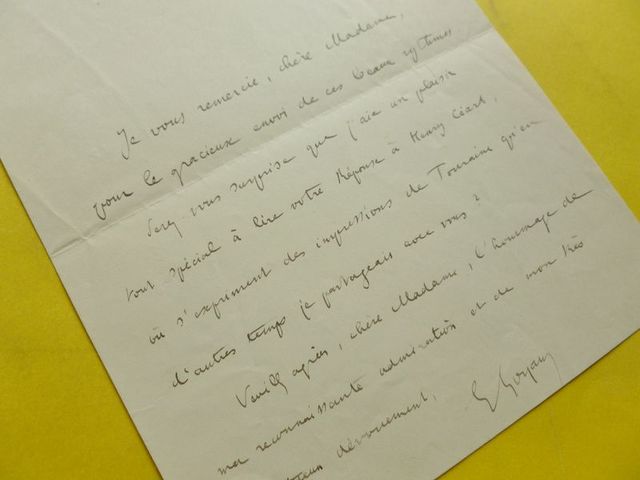 Je vous remercie, chère Madame,
pour le gracieux envoi de ces beaux rythmes
Serez vous surprise que j'aie un plaisir
tout spécial à lire votre Réponse à Henry Céard,
où s'expriment des impressions de Touraine qu'en
d'autres temps je partageais avec vous ?
Veuillez agréer, chère Madame, l'hommage de
ma reconnaissante admiration et de mon très
dévouement,
G Goyau